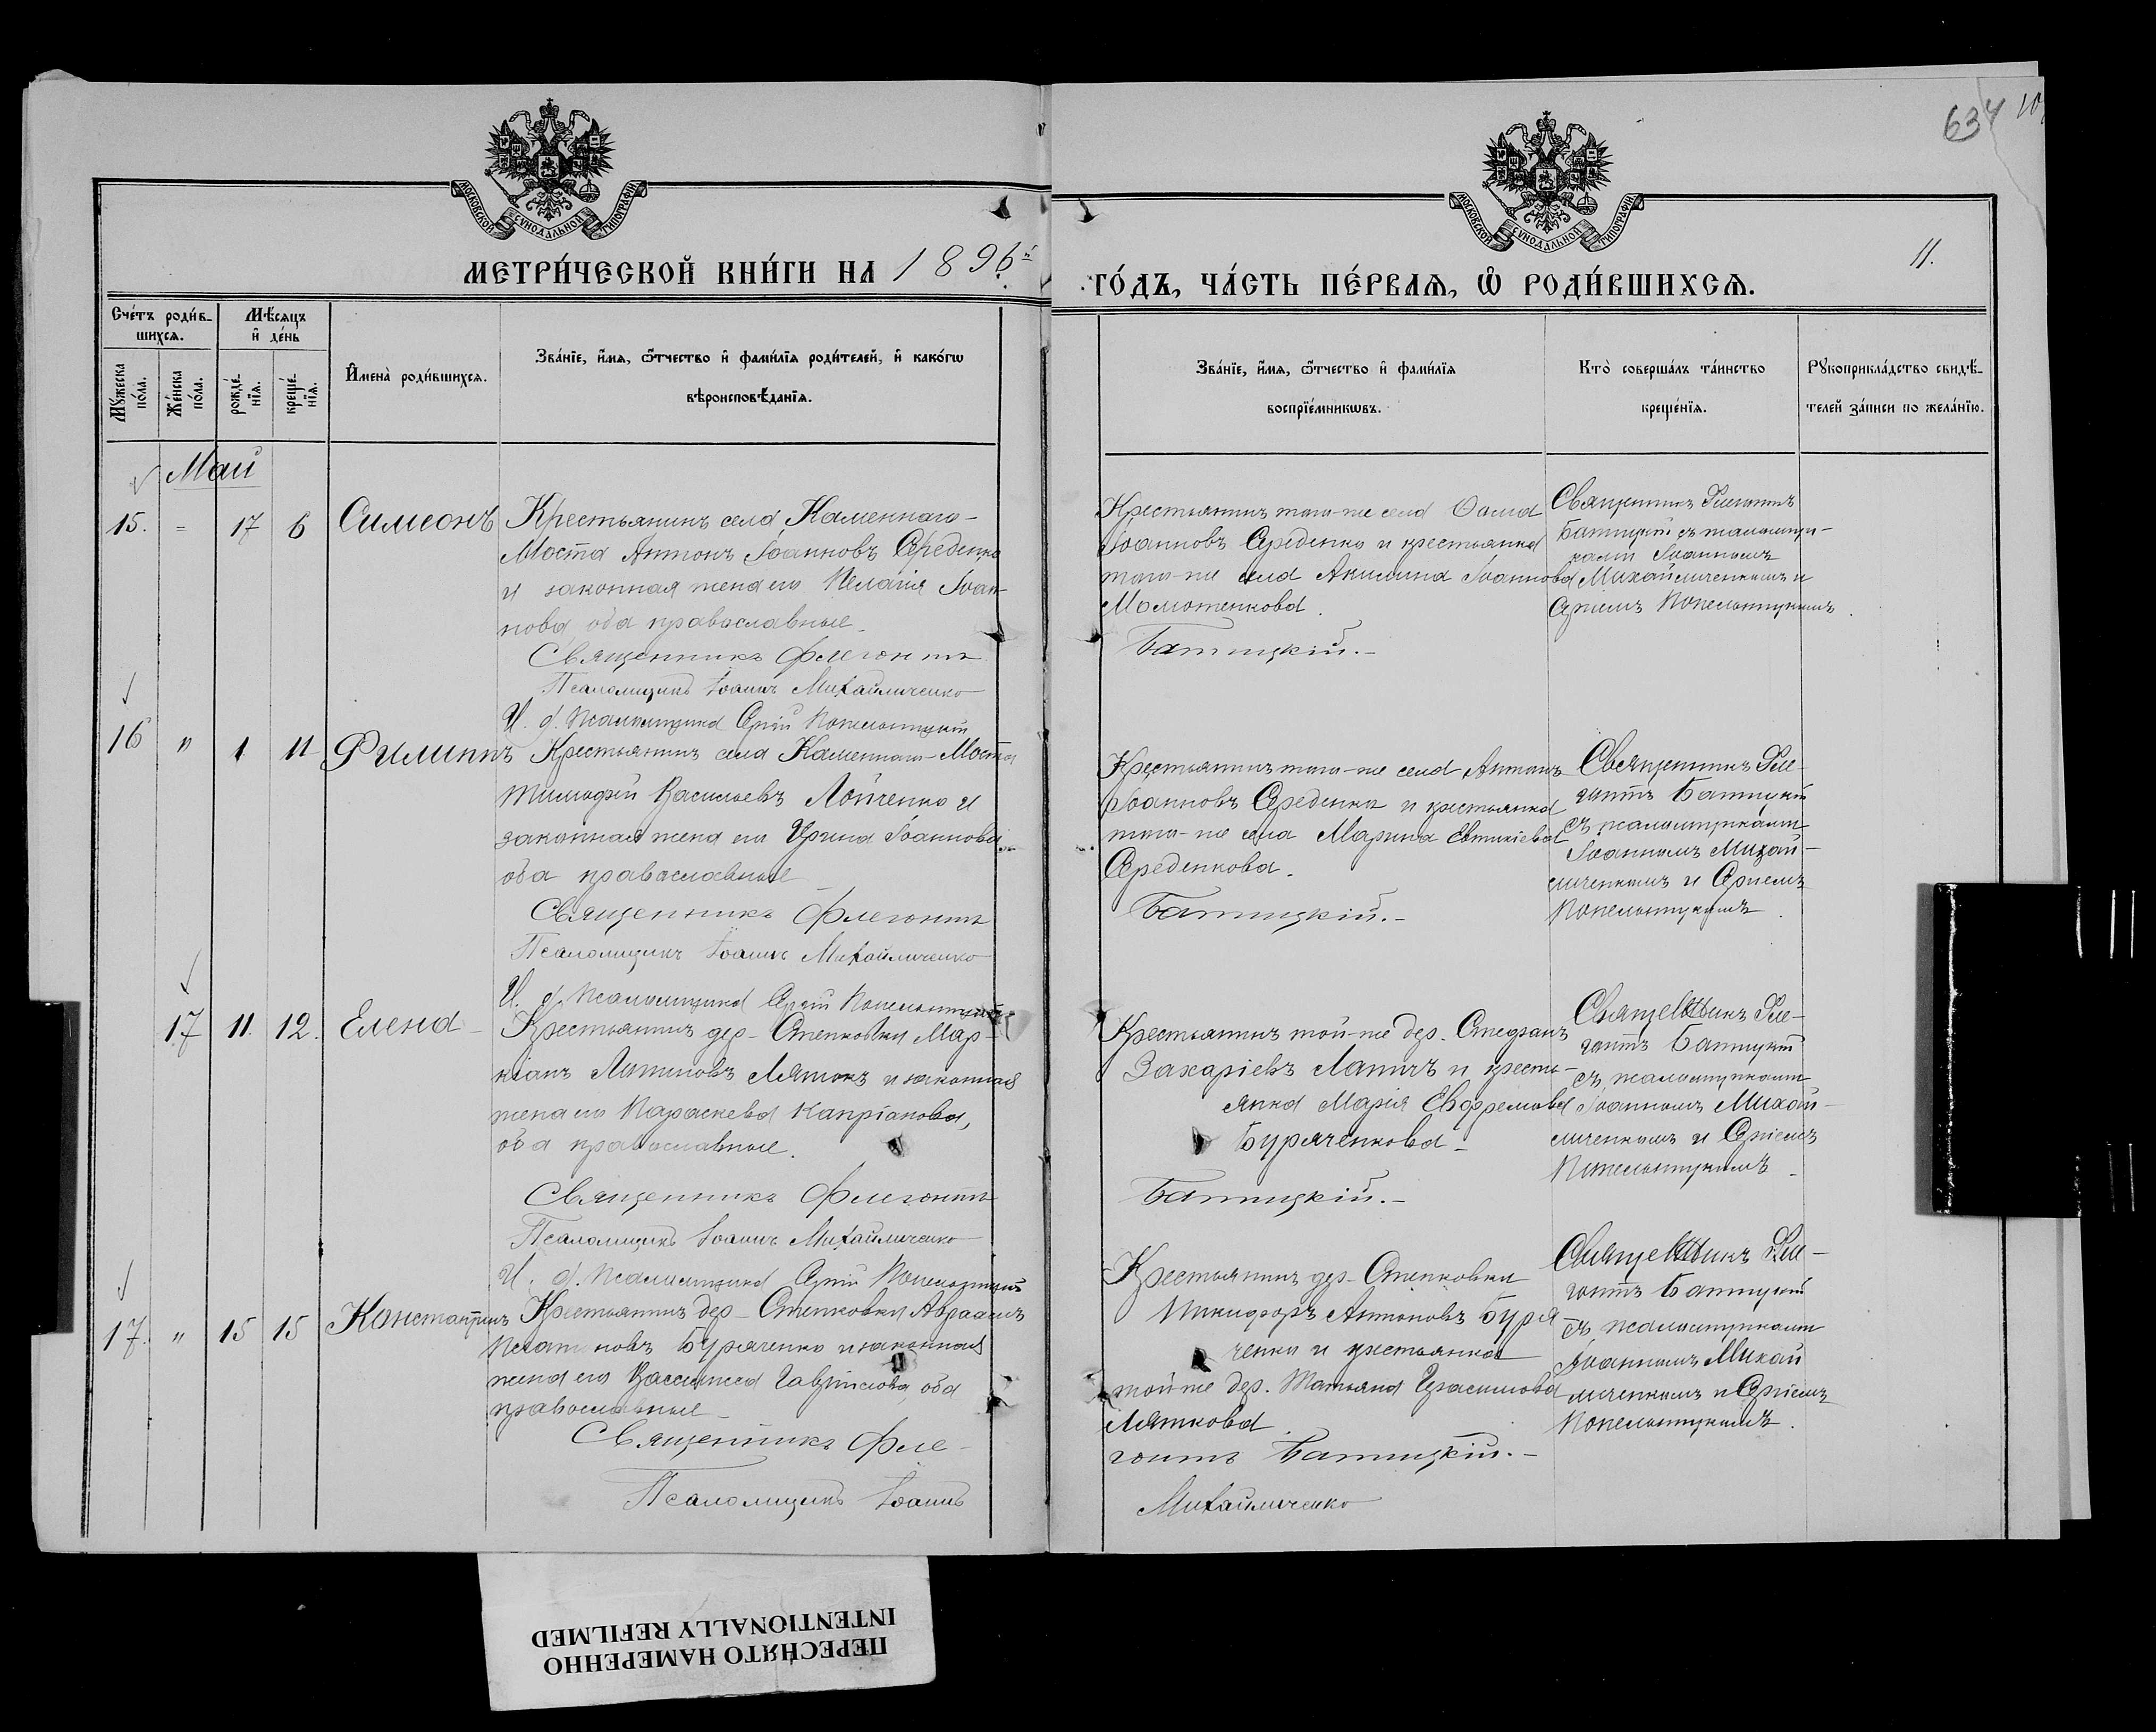 634
10
МОСКОВСКОЙ СУНОДАЛЬНОЙ ТИПОГРАФІИ
МОСКОВСКОЙ СУНОДАЛЬНОЙ ТИПОГРАФІИ
МЕТРИ́ЧЕСКОЙ КНИ́ГИ НА 1896й
ГО́ДЪ, ЧА́СТЬ ПЕ́РВАѦ, Ѡ҆ РОДИ́ВШИХСѦ.
11.
Сче́тъ роди́в-
шихсѧ.
Мѣ́сѧцъ
и҆ де́нь
Мꙋ́жеска
по́ла.
Же́нска
по́ла.
рожде́-
нїѧ.
креще́-
нїѧ.
И҆мена̀ роди́вшихсѧ.
Зва́нїе, и҆́мѧ, ѻ҆́тчество и҆ фами́лїѧ роди́телей, и҆ како́гѡ
вѣроисповѣ́данїѧ.
Зва́нїе, и҆́мѧ, ѻ҆́тчество и҆ фами́лїѧ
воспрїе́мникѡвъ.
Кто̀ соверша́лъ та́инство
креще́нїѧ.
Рꙋкоприкла́дство свидѣ́-
телей за́писи по жела́нїю.
Май
15. = 17 6 Симеонъ
Крестьянинъ села Каменнаго-
Моста Антонъ Іоанновъ Середенко
и законная жена его Пелагія Іоан-
нова оба православные
Священникъ Флегонтъ
Псаломщикъ Іоаннъ Михайличенко
И. д. Псаломщика Сергій Попельницкій
Крестьянинъ того-же села Фома
Іоанновъ Середенко и крестьянка
того-же села Акилина Іоаннова
Момотенкова.
Батицкій.-
Священникъ Флегонтъ
Батицкій съ псаломщи-
ками Іоанномъ
Михайличенкомъ и
Сергіемъ Попельницкимъ.
16 " 1 11 Филиппъ
Крестьянинъ села Каменнаго-Моста
Тимофей Васильевъ Лойченко и
законная жена его Ирина Іоаннова
оба православные
Священникъ Флегонтъ
Псаломщикъ Іоаннъ Михайличенко
И. д. Псаломщика Сергій Попельницкій
Крестьянинъ того-же села Антонъ
Іоанновъ Середенко и крестьянка
того-же села Марина Евтихіева
Середенкова.
Батицкій.-
Священникъ Фле-
гонтъ Батицкій
съ псаломщиками
Іоанномъ Михай-
личенкомъ и Сергіемъ
Попельницкимъ.
17 11. 12. Елена
Крестьянинъ дер-Степковки Мар-
кіанъ Лятокъ и законная
жена его Параскева Капріанова,
оба православные.
Священникъ Флегонтъ
Псаломщикъ Іоаннъ Михайличенко
И. д. Псаломщика Сергій Попельницкій
Крестьянинъ той-же дер. Стефанъ
Захаріевъ и кресть-
янка Марія Евфремова
Буряченкова
Батицкій.-
Священникъ Фле-
гонтъ Батицкій
съ псаломщиками
Іоанномъ Михай-
личенкомъ и Сергіемъ
Попельницкимъ
17. " 15 15 Константинъ
Крестьянинъ дер-Степковки Авраамъ
Буряченко и законная
жена его Васса Гавріилова, оба
православные
Священникъ Фле-
Псаломщикъ Іоаннъ
Крестьянинъ дер-Степковки
Никифоръ Антоновъ Буря
ченко и крестьянка
той же дер. Татьяна Герасимова
Ляткова.
гонтъ Батицкій.-
Михайличенко
Священникъ Фле-
гонтъ Батицкій
съ псаломщиками
Іоанномъ Михай
личенкомъ и Сергіемъ
Попельницкимъ.
ПЕРЕСНЯТО НАМЕРЕННО
INTENTIONALLY REFILMED